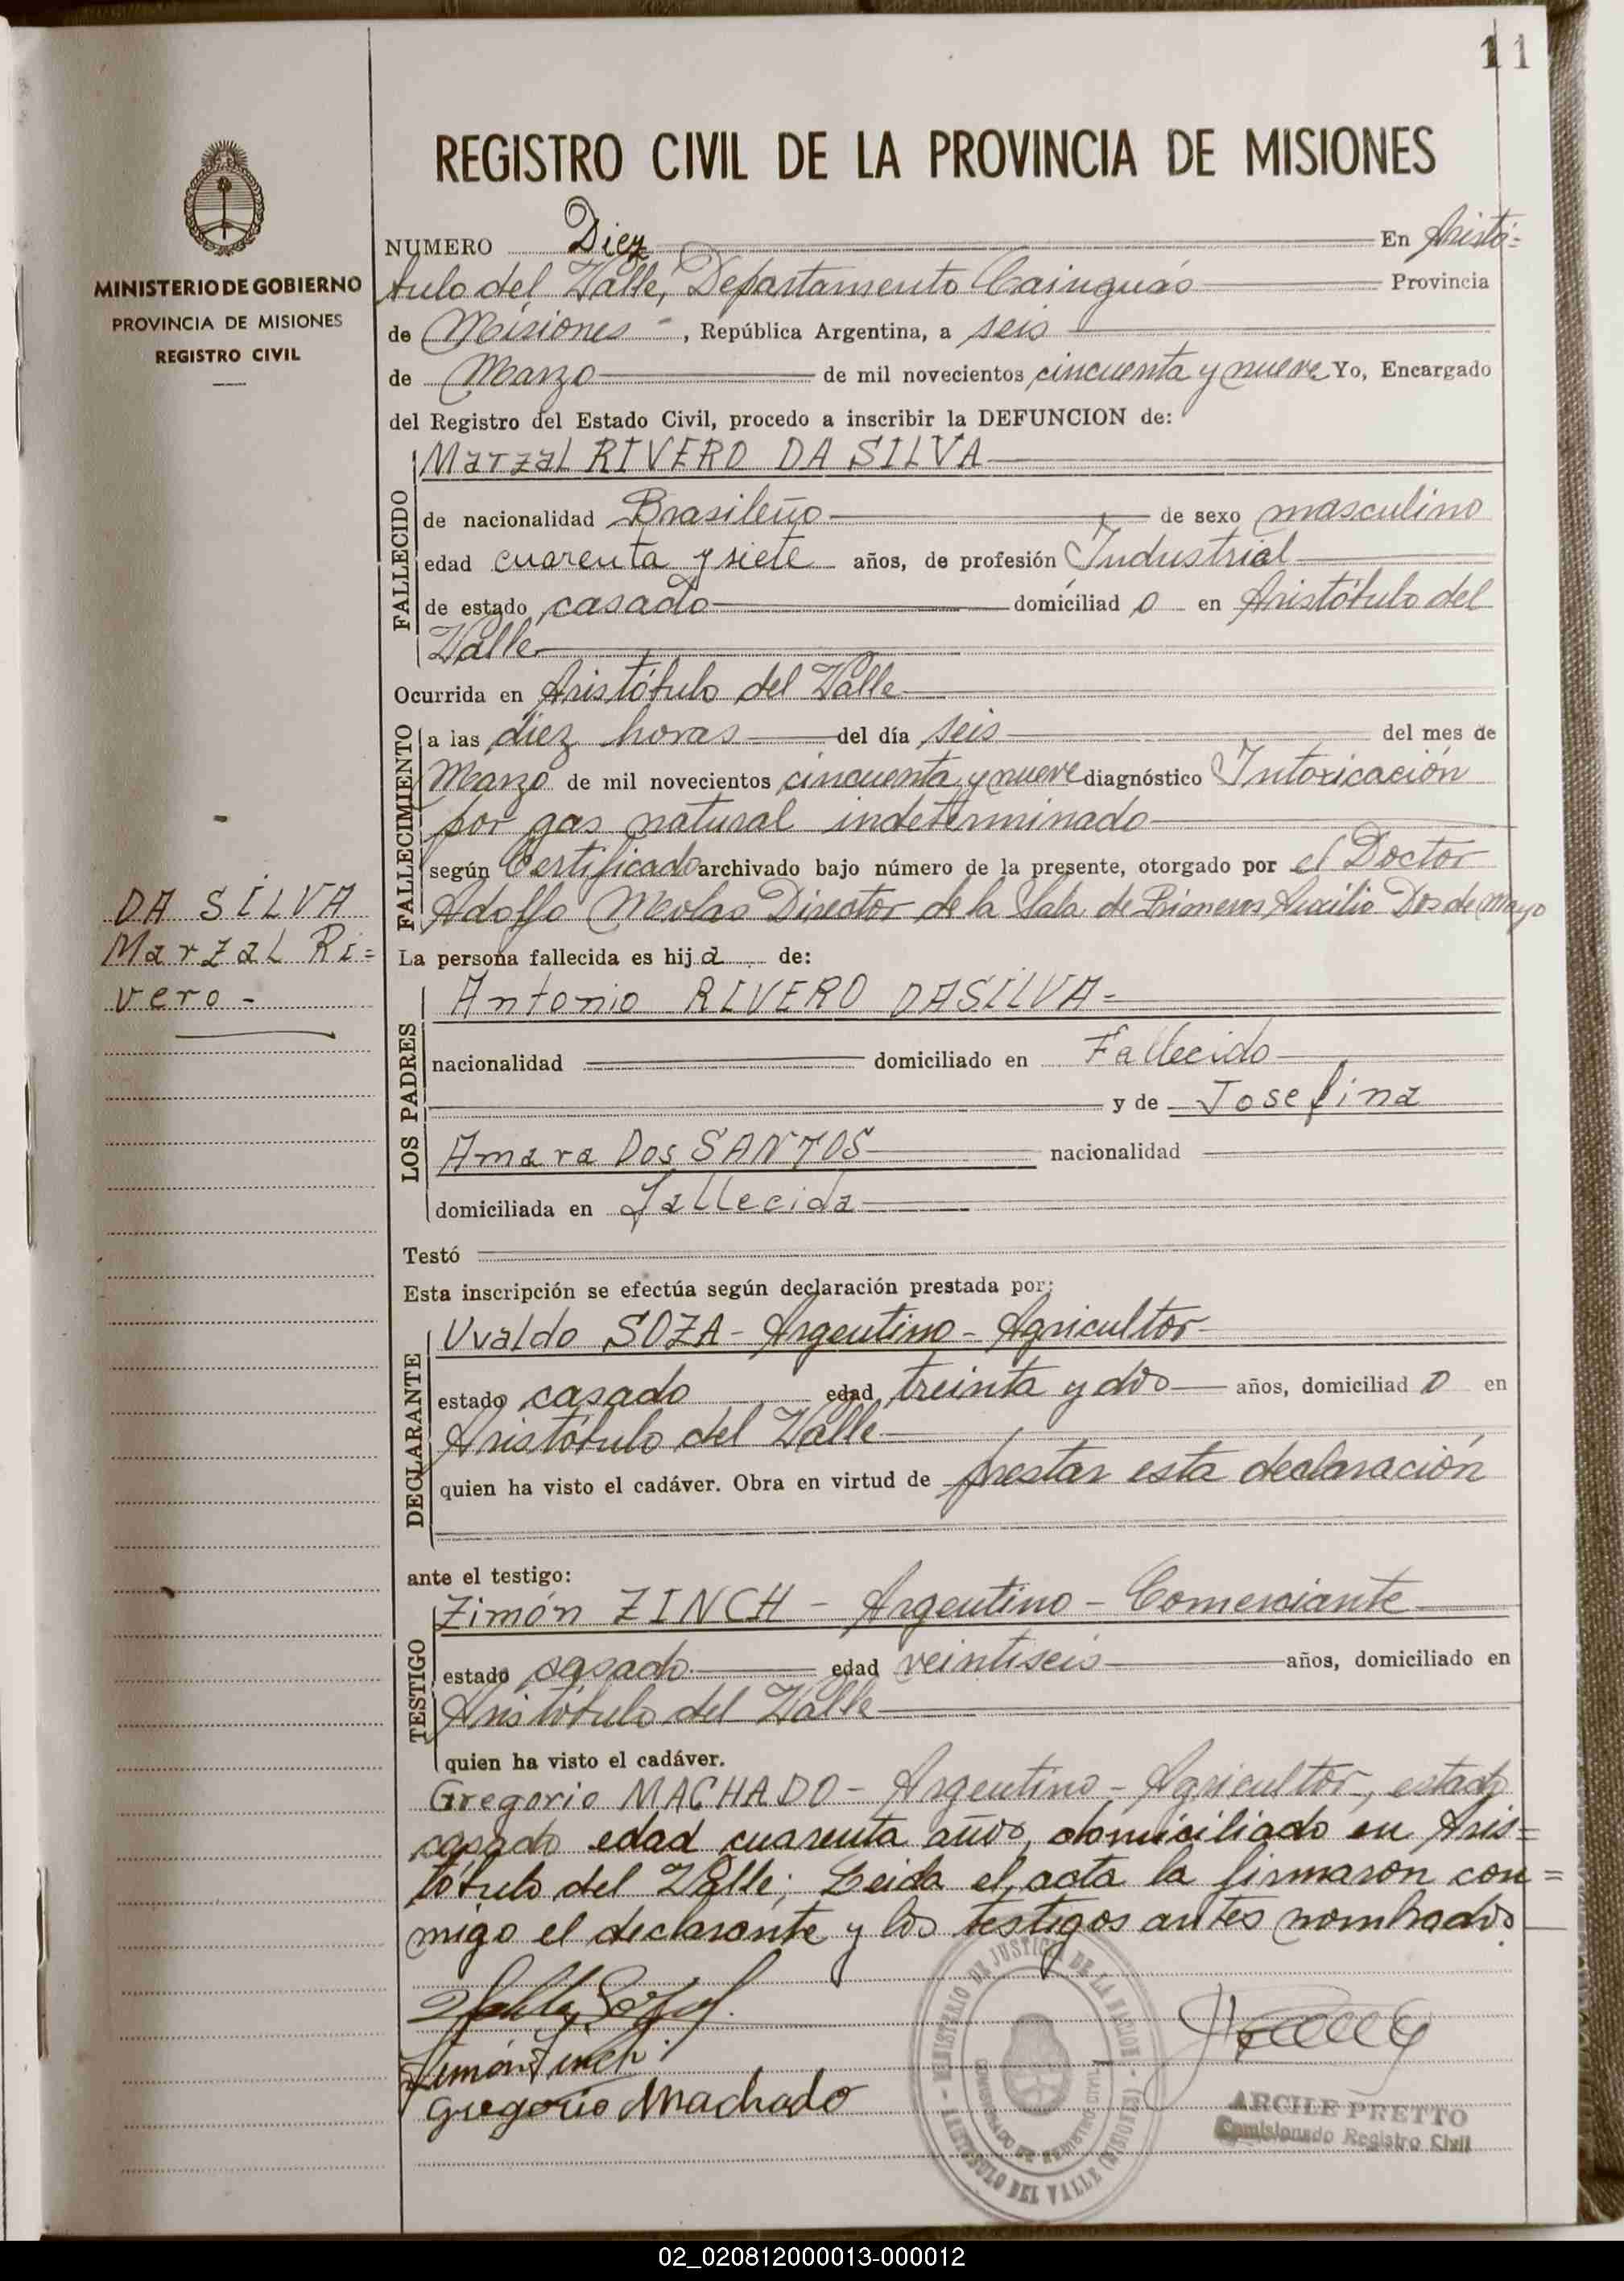 11
REGISTRO CIVIL DE LA PROVINCIA DE MISIONES
MINISTERIO DE GOBIERNO
PROVINCIA DE MISIONES
REGISTRO CIVIL
NUMERO Diez En Aristó=
bulo del Valle, Departamento Cainguás Provincia
de Misiones - , República Argentina, a seis
de Marzo de mil novecientos cincuenta y nueve Yo, Encargado
del Registro del Estado Civil, procedo a inscribir la DEFUNCION de:
Marzal RIVERO DA SILVA
FALLECIDO
de nacionalidad Brasileño de sexo masculino
edad cuarenta y siete años, de profesión Industrial
de estado casado domiciliad o en Aristóbulo del
Valle
Ocurrida en Aristóbulo del Valle
FALLECIMIENTO
a las diez horas del día seis del mes de
Marzo de mil novecientos cincuenta y nueve diagnóstico Intoxicación
por gas natural indeterminado
según Certificado archivado bajo número de la presente, otorgado por el Doctor
Adolfo Director de la Sala de Primeros Auxilio Dos de Mayo
DA SILVA
Marzal Ri=
vero -
La persona fallecida es hij a de:
LOS PADRES
Antonio RIVERO DASILVA=
nacionalidad domiciliado en Fallecido
y de Josefina
Amara Dos SANTOS nacionalidad
domiciliada en fallecida
Testó
Esta inscripción se efectúa según declaración prestada por:
DECLARANTE
Uvaldo SOZA - Argentino - Agricultor
estado casado edad treinta y dos años, domiciliad o en
Aristóbulo del Valle
quien ha visto el cadáver. Obra en virtud de prestar esta declaración
ante el testigo:
TESTIGO
Zimón ZINCH - Argentino - Comerciante
estado casado edad veintiseis años, domiciliado en
Aristóbulo del Valle
quien ha visto el cadáver.
Gregorio MACHADO - Argentino - Agricultor, estado
casado edad cuarenta años, domiciliado en Aris=
tóbulo del Valle; Leida el acta la firmaron con=
migo el declarante y los testigos antes nombrados.
Gregorio Machado
MINISTERIO DE JUSTICIA DE LA NACION
ARISTOBULO DEL VALLE (MISIONES)
ARCILE PRETTO
Comisionado Registro Civil
02_020812000013-000012